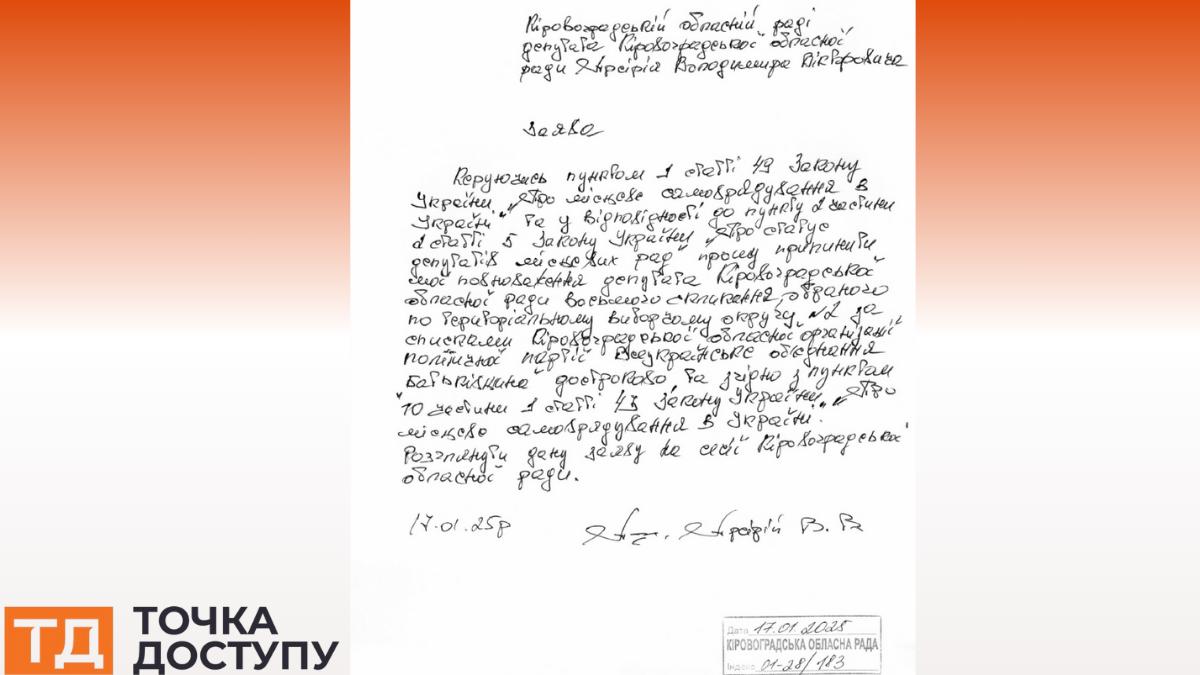 Кіровоградській обласній раді
депутата Кіровоградської обласної
ради Володимира Вікторовича
Заява
Керуючись пунктом 1 статті 49 Закону
України „Про місцеве самоврядування в
Україні" та у відповідності до пункту 2 частини
2 статті 5 Закону України „Про статус
депутатів місцевих рад" прошу припинити
мої повноваження депутата Кіровоградської
обласної ради восьмого скликання, обраного
по територіальному виборчому округу №2 за
списками Кіровоградської обласної організації
політичної партії Всеукраїнське обєднання
"Батьківщина" достроково та згідно з пунктом
10 частини 1 статті 43 Закону України „Про
місцеве самоврядування в Україні.
Розглянути дану заяву на сесії Кіровоградської
обласної ради.
17.01.25р В. В
Дата 17.01.2025
КІРОВОГРАДСЬКА ОБЛАСНА РАДА
Індекс 01-28/183
ТД ТОЧКА
ДОСТУПУ